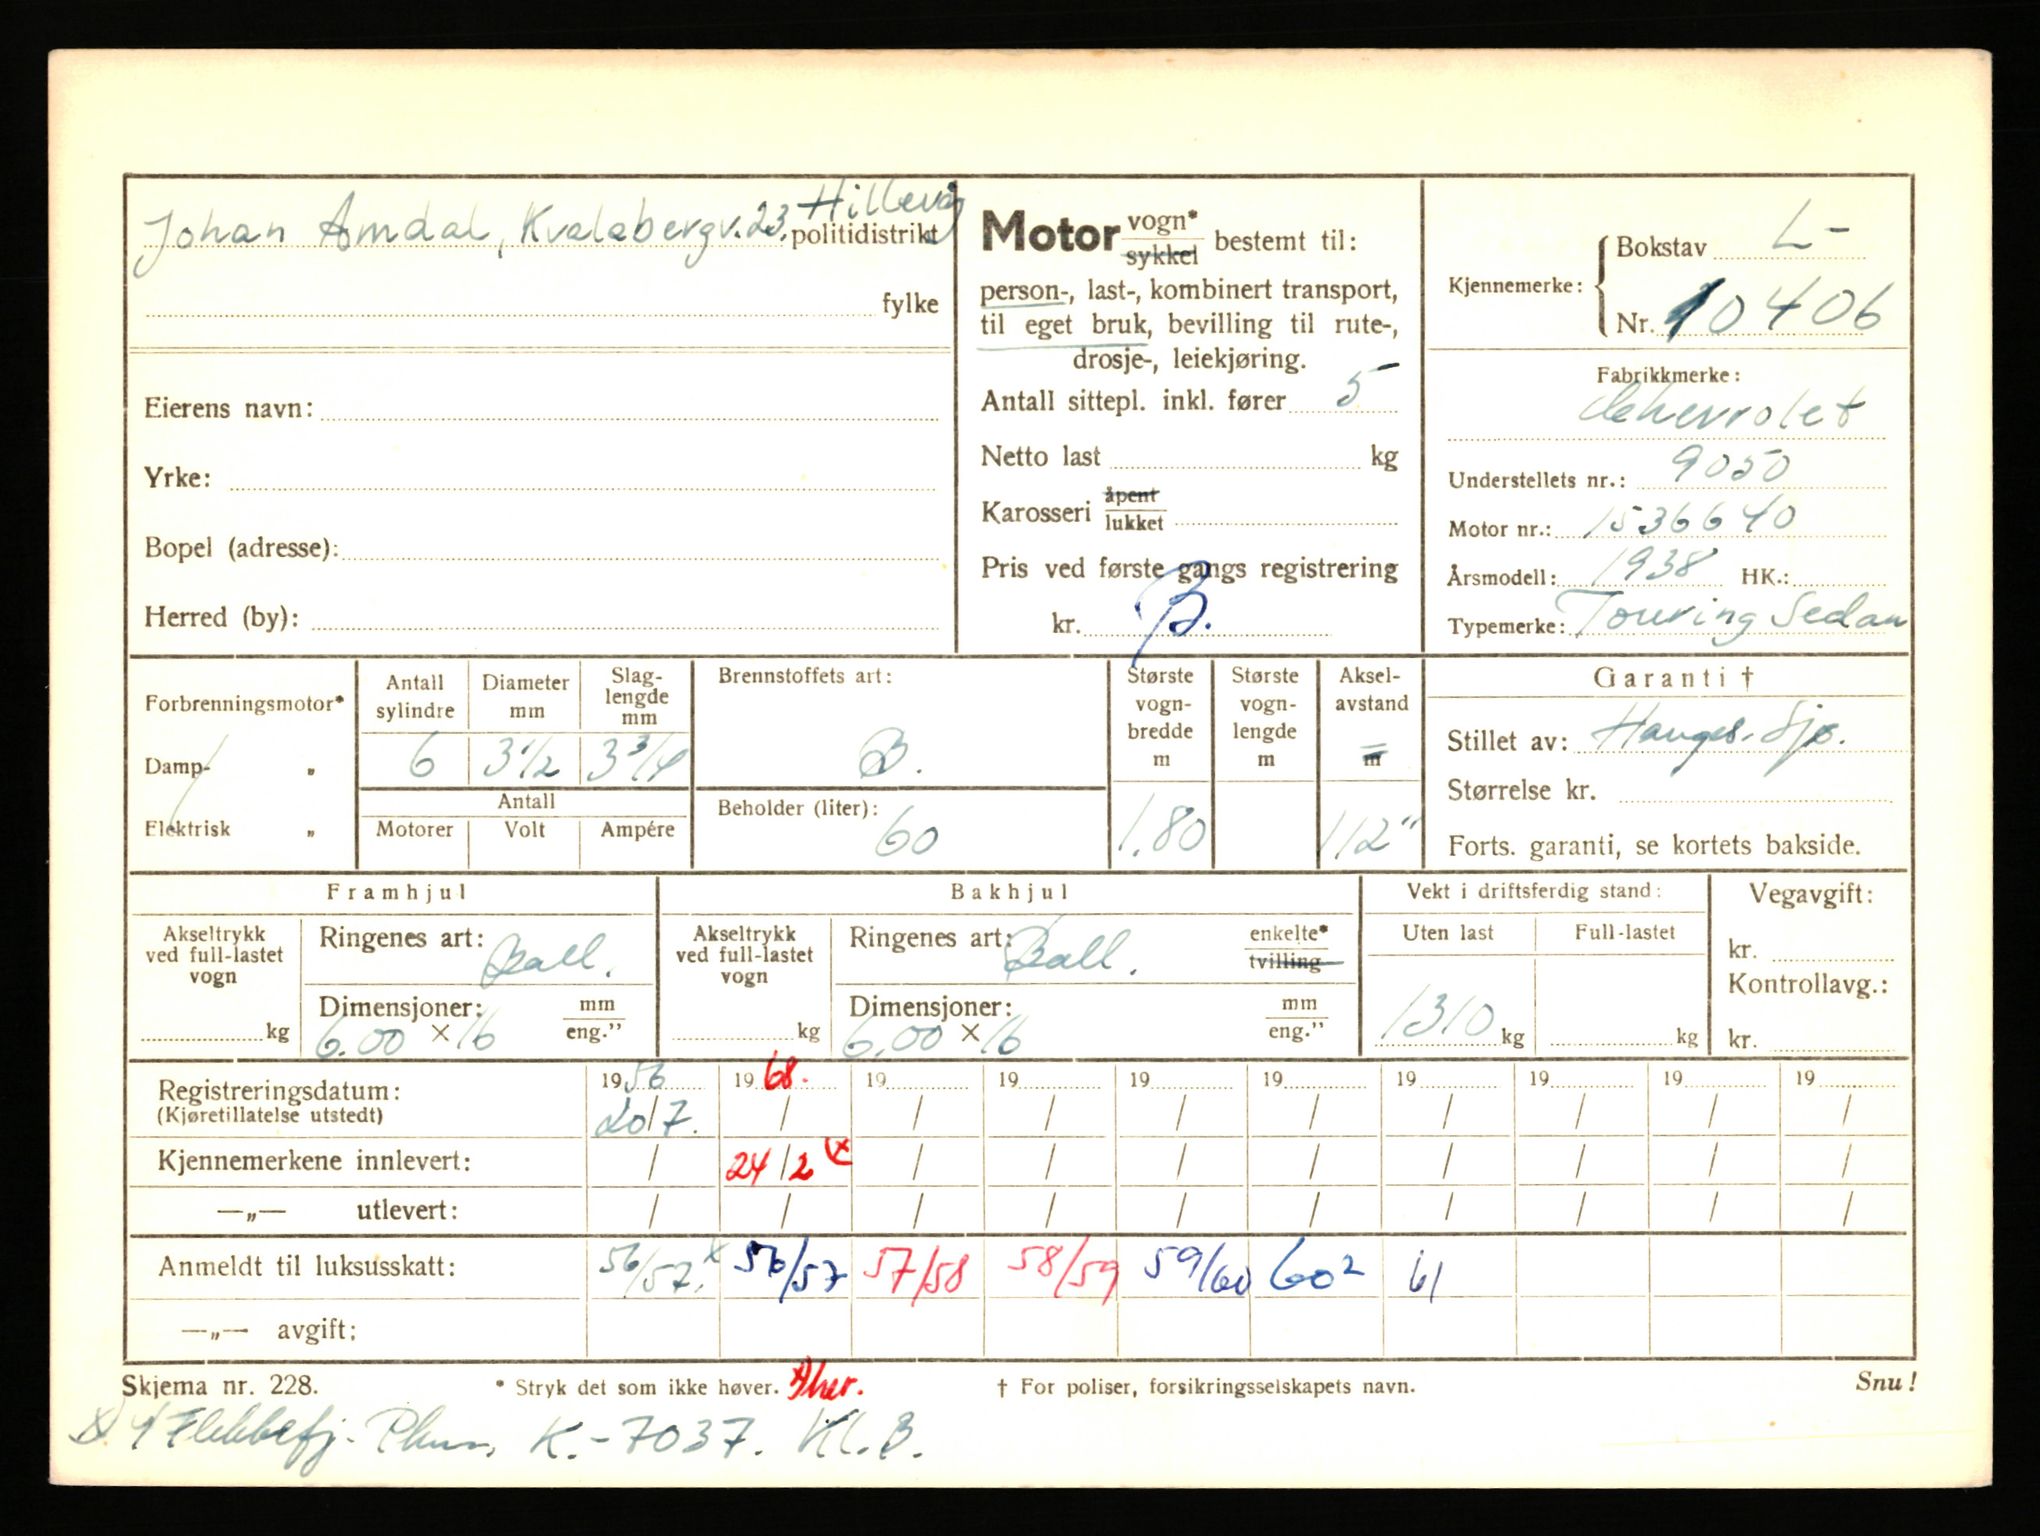 Hillevåg
Johan Amdal, Kvalabergv. 23. politidistrikt
fylke
Eierens navn:
Yrke:
Bopel (adresse):
Herred (by):
Motor vogn* sykkel bestemt til:
person-, last-, kombinert transport,
til eget bruk, bevilling til rute-,
drosje-, leiekjøring.
Antall sittepl. inkl. fører 5
Netto last kg
Karosseri åpent lukket
Pris ved første gangs registrering
kr. B.
Kjennemerke: Bokstav L-
Nr. 10406
Fabrikkmerke:
Chevrolet
Understellets nr.: 9050
Motor nr.: 1536640
Årsmodell: 1938 HK.:
Typemerke: Touring Sedan
Forbrenningsmotor*
Damp- „
Elektrisk „
Antall sylindre Diameter mm Slag-lengde mm
6 3 1/2 3 3/4
Antall
Motorer Volt Ampére
Brennstoffets art:
B.
Beholder (liter):
60
Største vogn-bredde m
1.80
Største vogn-lengde m
Aksel-avstand m
112"
Garanti †
Stillet av: Hauges. Sjø.
Størrelse kr.
Forts. garanti, se kortets bakside.
Framhjul
Akseltrykk ved full-lastet vogn
kg
Ringenes art: Ball.
Dimensjoner: mm eng."
6.00 × 16
Bakhjul
Akseltrykk ved full-lastet vogn
kg
Ringenes art: Ball. enkelte* tvilling
Dimensjoner: mm eng."
6.00 × 16
Vekt i driftsferdig stand:
Uten last Full-lastet
1310 kg kg
Vegavgift:
kr.
Kontrollavg.:
kr.
Registreringsdatum: 1956 1968. 19 19 19 19 19 19 19 19
(Kjøretillatelse utstedt) 20/7. / / / / / / / / /
Kjennemerkene innlevert: / 24/2 x / / / / / / / /
—„— utlevert: / / / / / / / / / /
Anmeldt til luksusskatt: 56/57. x 56/57 57/58 58/59 59/60 60² 61
—„— avgift;
Skjema nr. 228. * Stryk det som ikke høver. † For poliser, forsikringsselskapets navn. Snu!
K.-7037. Kl. B.